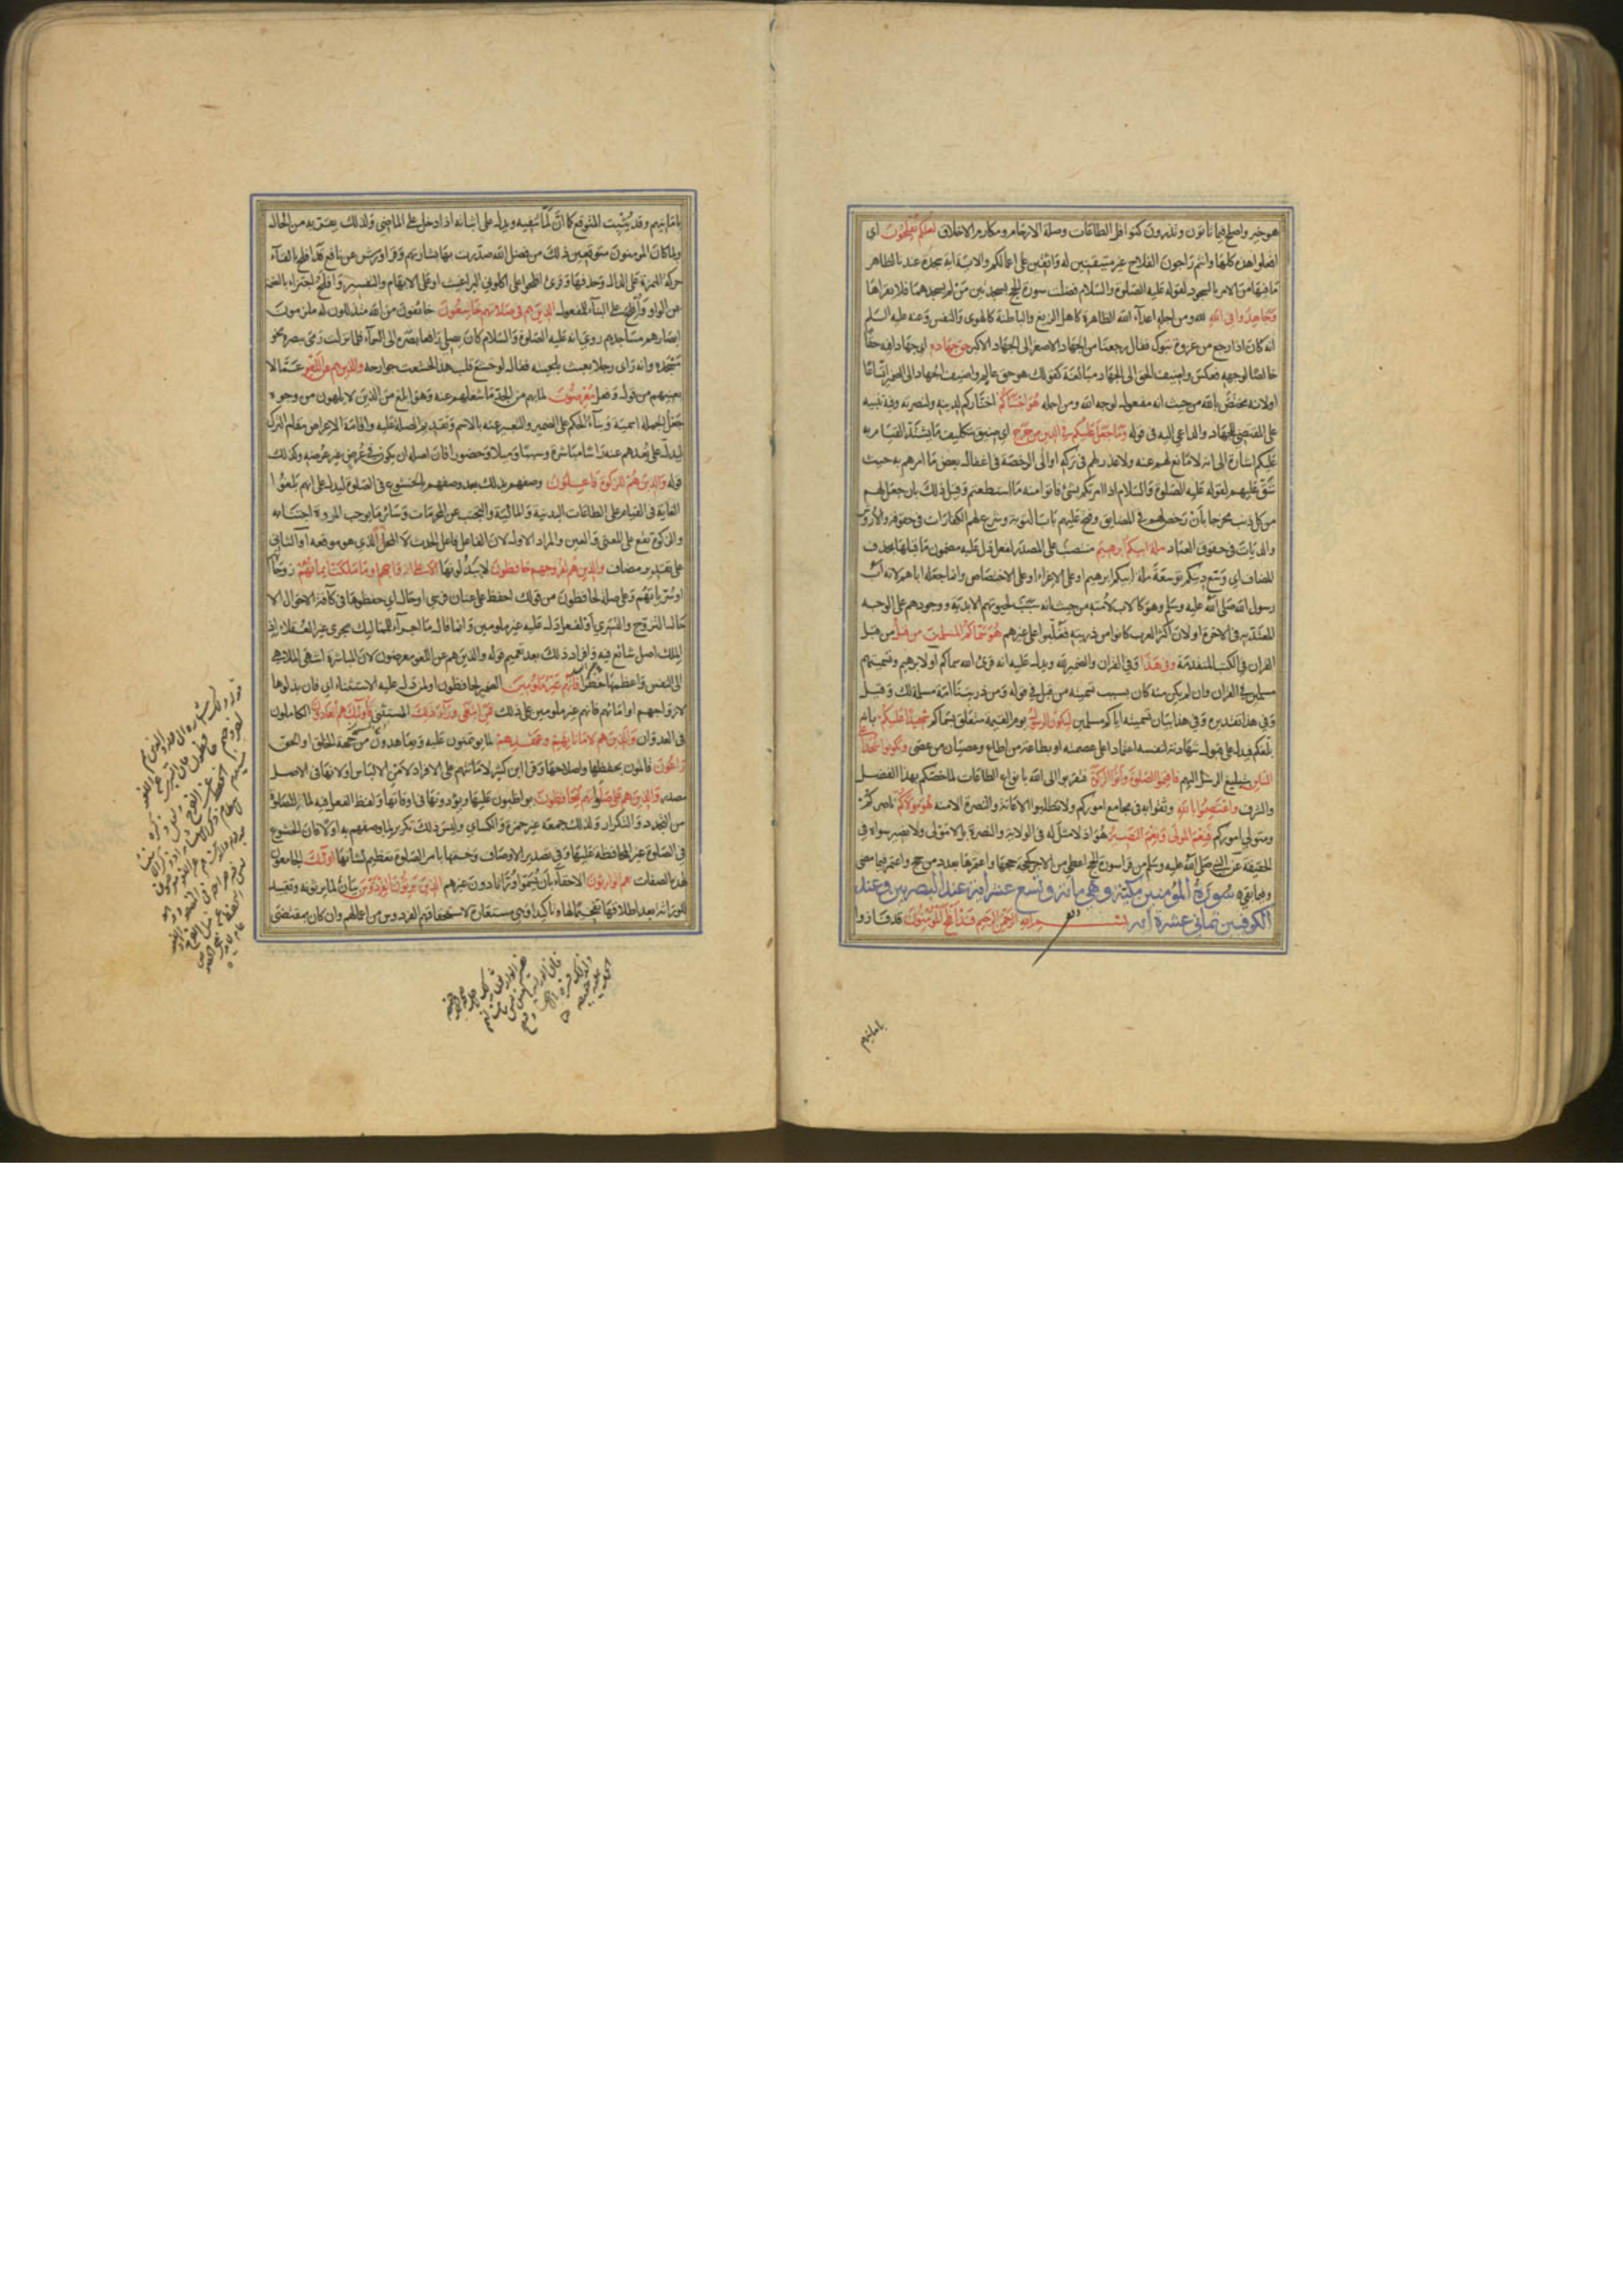 هو خير واصلح فيما تاتون وتذرون كنوافل الطاعات وصلة الارحام ومكارم الاخلاق لعلكم تفلحون اى
افعلوا هذه كلها وانتم راجون الفلاح غير متيقنين له واثقين على اعمالكم والاية اية سجدة عندنا لظاهر
ما فيها من الامر بالسجود لقوله عليه الصلوة والسلام فضلت سورة الحج بسجدتين من لم يسجدهما فلا يقراها
وجاهدوا فى الله لله ومن اجله اعداء الله الظاهرة كاهل الزيغ والباطنة كالهوى والنفس وعنه عليه السلم
انه كان اذا رجع من غزوة تبوك فقال رجعنا من الجهاد الاصغر الى الجهاد الاكبر حق جهاده اى جهادا فيه حقا
خالصا لوجهه فعكس واضيف الحق الى الجهاد مبالغة كقولك هو حق عالم واضيف الجهاد الى الضمير اتساعا
اولانه مختص بالله من حيث انه مفعول لوجه الله ومن اجله هو اجتباكم اختاركم لدينه ولنصرته وفيه تنبيه
على المقتضى للجهاد والداعى اليه فى قوله وما جعل عليكم فى الدين من حرج اى ضيق بتكليف ما يشتد القيام به
عليكم اشارة الى انه لا مانع لهم عنه ولا عذر لهم فى تركه او الى الرخصة فى اغفال بعض ما امرهم به حيث
شق عليهم لقوله عليه الصلوة والسلام اذا امرتكم بشئ فاتوا منه ما استطعتم وقيل ذلك بان جعل لهم
من كل ذنب مخرجا بان رخص لهم فى المضايق وفتح عليهم باب التوبة وشرع لهم الكفارات فى حقوقه والاروش
والديات فى حقوق العباد ملة ابيكم ابرهيم منتصب على المصدر لفعل دل عليه مضمون ما قبلها بحذف
المضاف اى وسع دينكم توسعة ملة ابيكم ابرهيم او على الاغراء او على الاختصاص وانما جعله اباهم لانه اب
رسول الله صلى الله عليه وسلم وهو كالاب لامته من حيث انه سبب لحيوتهم الابدية ووجودهم على الوجه
المعتد به فى الاخرة او لان اكثر العرب كانوا من ذريته فغلبوا على غيرهم هو سماكم المسلمين من قبل من قبل
القران فى الكتب المتقدمة وفى هذا وفى القران والضمير لله ويدل عليه انه قرئ الله سماكم او لابرهيم وتسميتهم
مسلمين فى القران وان لم يكن منه كان بسبب تسميته من قبل فى قوله ومن ذريتنا امة مسلمة لك وقيل
وفى هذا تقديره وفى هذا بيان تسميته اياكم مسلمين ليكون الرسول يوم القيمة متعلق بسماكم شهيدا عليكم بانه
بلغكم فيدل على قبول شهادته لنفسه اعتمادا على عصمته او بطاعة من اطاع وعصيان من عصى وتكونوا شهداء على
الناس بتبليغ الرسل اليهم فاقيموا الصلوة واتوا الزكوة فتقربوا الى الله بانواع الطاعات لما خصكم بهذا الفضل
والشرف واعتصموا بالله وثقوا به فى مجامع اموركم ولا تطلبوا الاعانة والنصرة الا منه هو موليكم ناصركم
ومتولى اموركم فنعم المولى ونعم النصير هو اذ لا مثل له فى الولاية والنصرة بل لا مولى ولا نصير سواه فى
الحقيقة عن النبى صلى الله عليه وسلم من قرا سورة الحج اعطى من الاجر كحجة حجها واعتمرها بعدد من حج واعتمر فيما مضى
وفيما بقى سورة المؤمنين مكية وهى مائة وتسع عشر اية عند البصريين وعند
الكوفيين ثمانى عشرة اية بسم الله الرحمن الرحيم قد افلح المؤمنون قد فازوا
بامانيهم
بامانيهم وقد يثبت المتوقع كما ان لما تنفيه ويدل على اثباته اذا دخل على الماضى ولذلك يقربه من الحال
ولما كان المؤمنون متوقعين ذلك من فضل الله صدرت بها بشارتهم وقرا ورش عن نافع قد افلح بالقاء
حركة الهمزة على الدال وحذفها وقرئ افلحوا على اكلونى البراغيث او على الابهام والتفسير وافلح اجتزاء بالضمة
عن الواو وافلح على البناء للمفعول الذين هم فى صلاتهم خاشعون خائفون من الله متذللون له ملزمون
ابصارهم مساجدهم روى انه عليه الصلوة والسلام كان يصلى رافعا بصره الى السماء فلما نزلت رمى ببصره نحو
مسجده وانه راى رجلا يعبث بلحيته فقال لو خشع قلب هذا لخشعت جوارحه والذين هم عن اللغو عما لا
يعنيهم من قول وفعل معرضون لما بهم من الجد ما شغلهم عنه وهو ابلغ من الذين لا يلهون من وجوه
جعل الجملة اسمية وبناء الحكم على الضمير والتعبير عنه بالاسم وتقديم الصلة عليه واقامة الاعراض مقام الترك
ليدل على بعدهم عنه راسا مباشرة وتسببا وميلا وحضورا فان اصله ان يكون فى عرض غير عرضه وكذلك
قوله والذين هم للزكوة فاعلون وصفهم بذلك بعد وصفهم بالخشوع فى الصلوة ليدل على انهم بلغوا
الغاية فى القيام على الطاعات البدنية والمالية والتجنب عن المحرمات وسائر ما يوجب المروة اجتنابه
والزكوة تقع على المعنى والعين والمراد الاول لان الفاعل فاعل الحدث لا المحل الذى هو موقعه او الثانى
على تقدير مضاف والذين هم لفروجهم حافظون لا يبذلونها الا على ازواجهم او ما ملكت ايمانهم زوجاتهم
او سرياتهم وعلى صلة لحافظون من قولك احفظ على عنان فرسى او حال اى حفظوها فى كافة الاحوال الا
حال التزوج والتسرى او لفعل دل عليه غير ملومين وانما قال ما اجراء للمماليك مجرى غير العقلاء اذ
الملك اصل شائع فيه وافراد ذلك بعد تعميم قوله والذين هم عن اللغو معرضون لان المباشرة اشهى الملاهى
الى النفس واعظمها خطرا فانهم غير ملومين الضمير لحافظون او لمن دل عليه الاستثناء اى فان بذلوها
لازواجهم او امائهم فانهم غير ملومين على ذلك فمن ابتغى وراء ذلك المستثنى فاولئك هم العادون الكاملون
فى العدوان والذين هم لاماناتهم وعهدهم لما يؤتمنون عليه ويعاهدون من جهة الحق او الخلق
راعون قائمون بحفظها واصلاحها وقرا ابن كثير لامانتهم على الافراد لامن الالباس او لانها فى الاصل
مصدر والذين هم على صلواتهم يحافظون يواظبون عليها ويؤدونها فى اوقاتها ولفظ الفعل فيه لما فى الصلوة
من التجدد والتكرار ولذلك جمعه غير حمزة والكسائى وليس ذلك تكريرا لما وصفهم به اولا فان الخشوع
فى الصلوة غير المحافظة عليها وفى تصدير الاوصاف وختمها بامر الصلوة تعظيم لشانها اولئك الجامعون
لهذه الصفات هم الوارثون الاحقاء بان يسموا وراثا دون غيرهم الذين يرثون الفردوس بيان لما يرثونه وتقييد
للوراثة بعد اطلاقها تفخيما لها وتاكيدا وهى مستعارة لاستحقاقهم الفردوس من اعمالهم وان كان بمقتضى